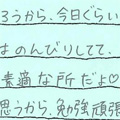 ろうから、今日ぐらい
はのんびりしてて、
素適な所だよ♡
思うから、勉強頑張